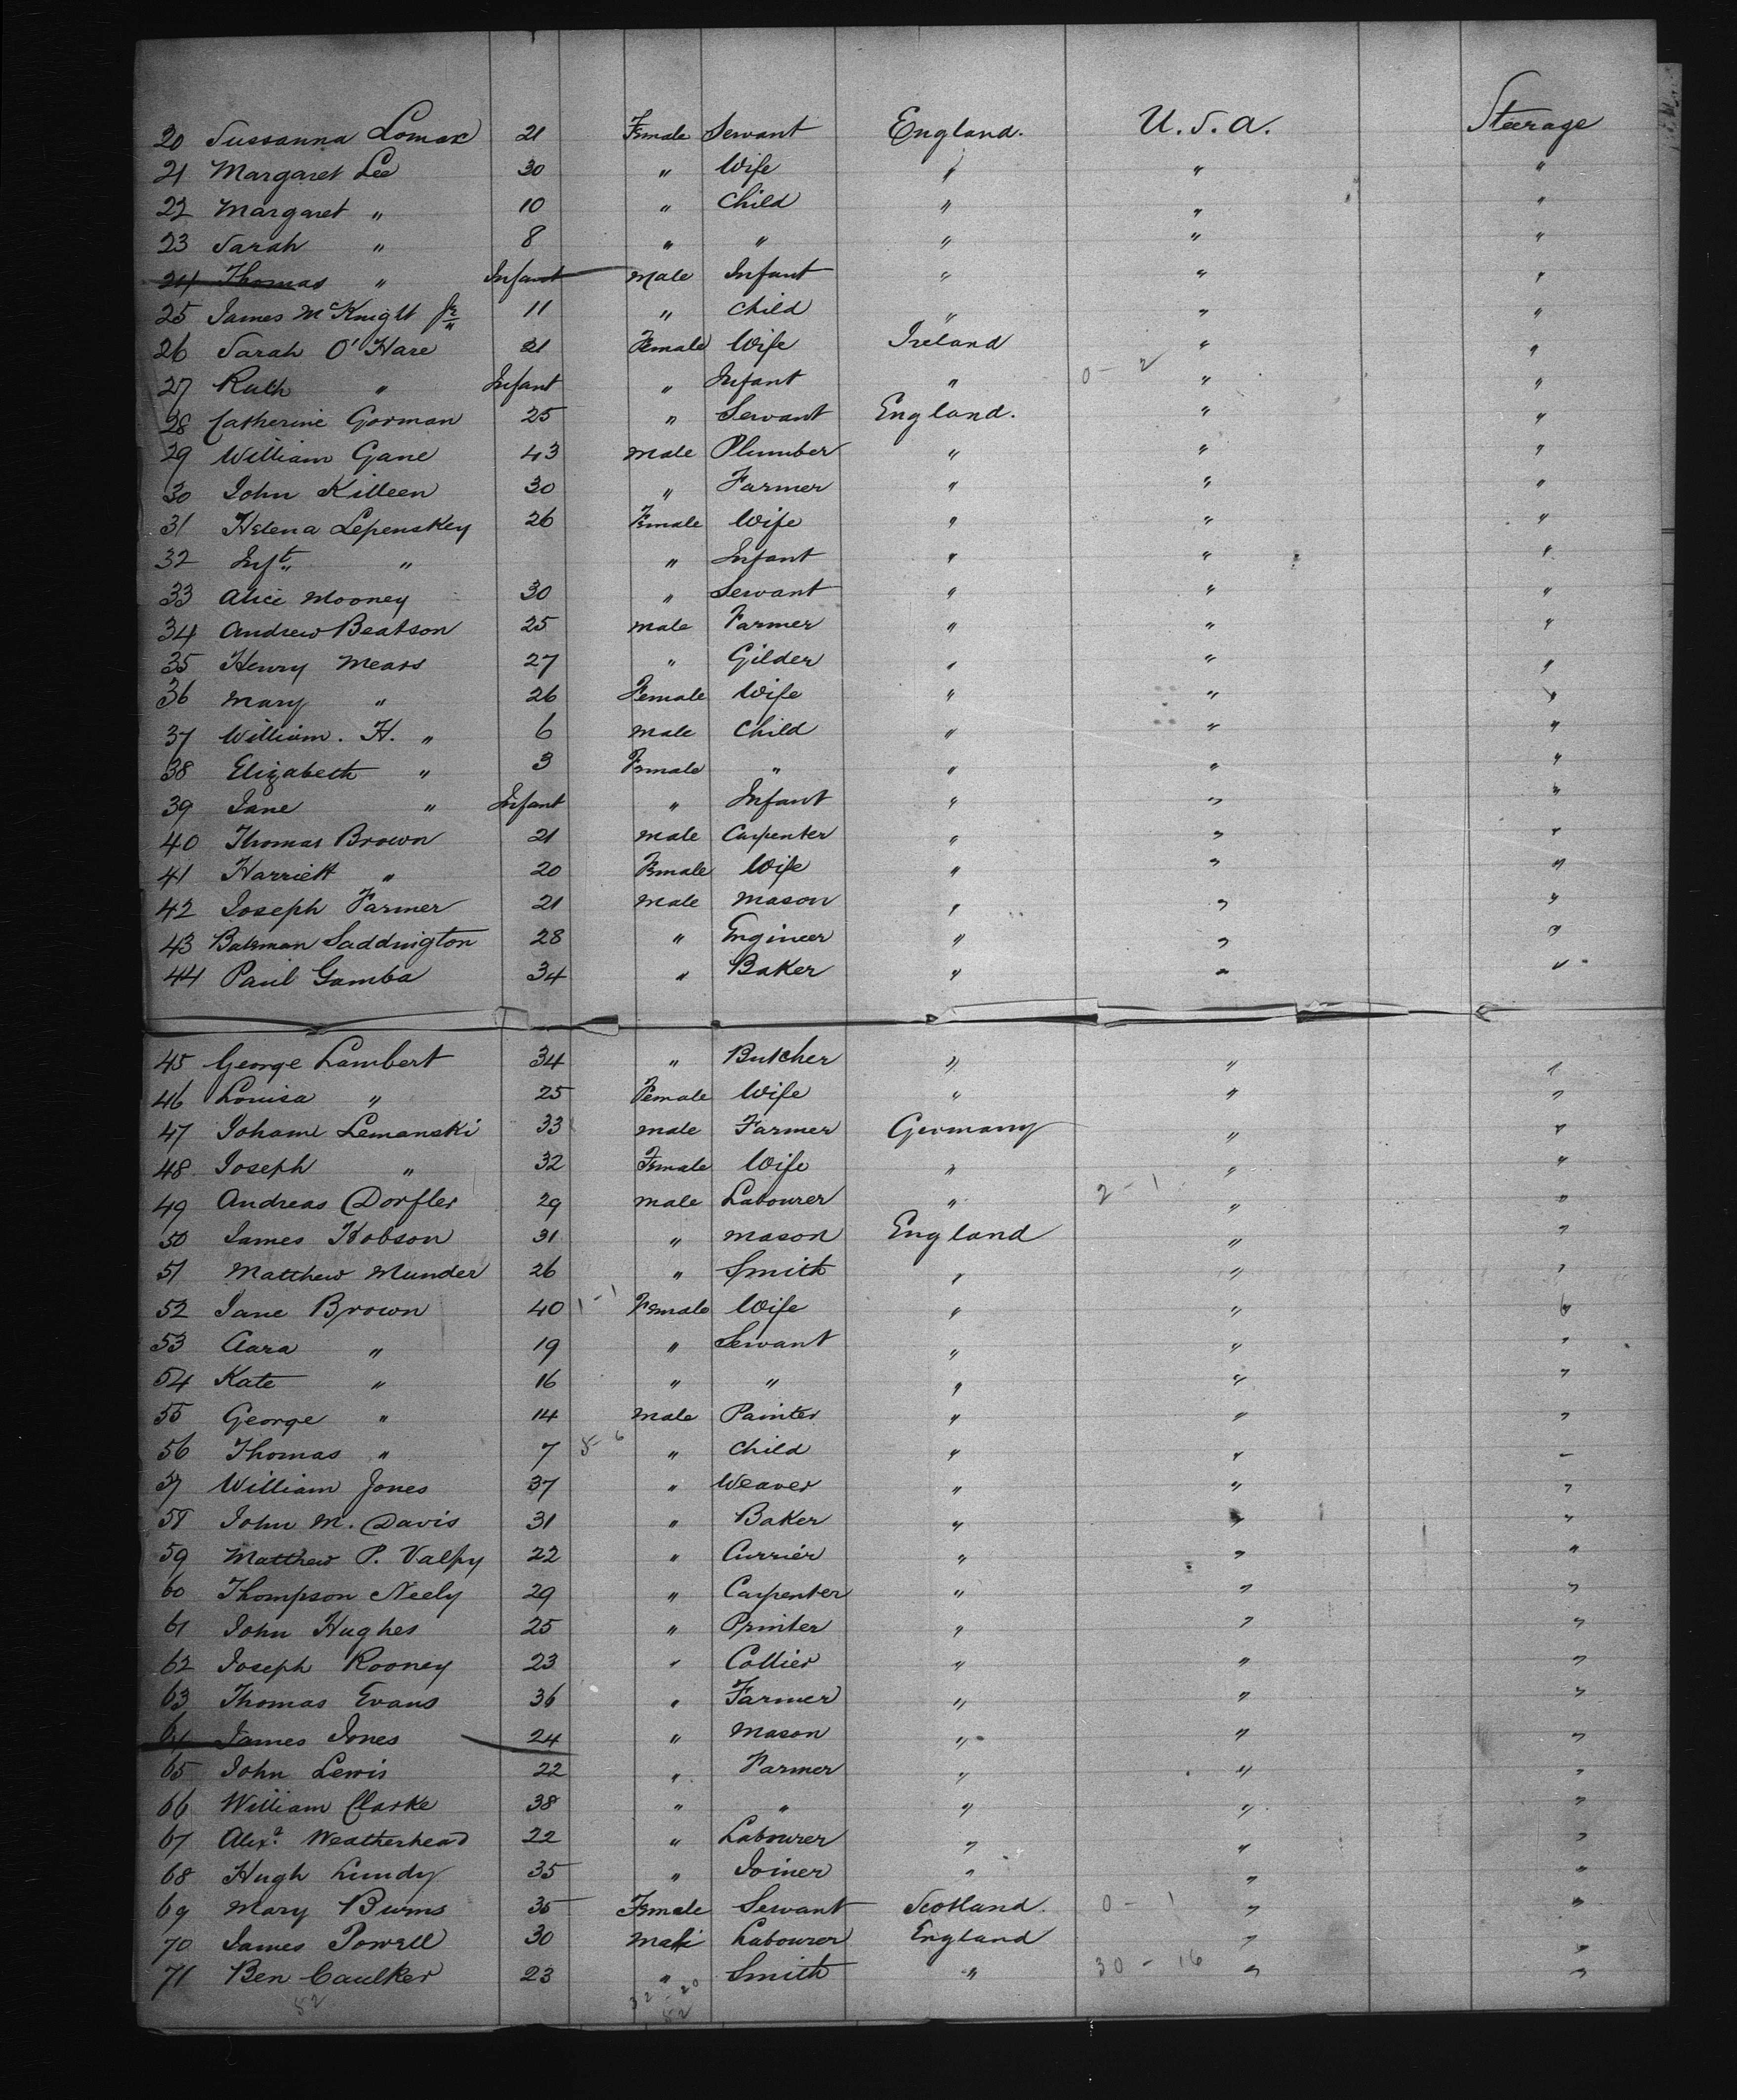 20 Sussanna Lomax 21 Female Servant England. U.S.A. Steerage
21 Margaret Lee 30 " Wife " " "
22 Margaret " 10 " Child " " "
23 Sarah " 8 " " " " "
24 Thomas " Infant Male Infant " " "
25 James McKnight Jr 11 " Child " " "
26 Sarah O'Hare 21 Female Wife Ireland " "
27 Ruth " Infant " Infant " 0 - 2 " "
28 Catherine Gorman 25 " Servant England. " "
29 William Gane 43 Male Plumber " " "
30 John Killeen 30 " Farmer " " "
31 Helena Lepenskey 26 Female Wife " " "
32 Inft " " Infant " " "
33 Alice Mooney 30 " Servant " " "
34 Andrew Beatson 25 Male Farmer " " "
35 Henry Mears 27 " Gilder " " "
36 Mary " 26 Female Wife " " "
37 William. H. " 6 Male Child " " "
38 Elizabeth " 3 Female " " " "
39 Jane " Infant " Infant " " "
40 Thomas Brown 21 Male Carpenter " " "
41 Harriett " 20 Female Wife " " "
42 Joseph Farmer 21 Male Mason " " "
43 Bateman Saddington 28 " Engineer " " "
44 Paul Gamba 34 " Baker " " "
45 George Lambert 34 " Butcher " " "
46 Louisa " 25 Female Wife " " "
47 Johann Lemanski 33 Male Farmer Germany " "
48 Joseph " 32 Female Wife " " "
49 Andreas Dorfler 29 Male Labourer " 2 - 1 " "
50 James Hobson 31 " Mason England " "
51 Matthew Munder 26 " Smith " " "
52 Jane Brown 40 1 - 1 Female Wife " " "
53 Clara " 19 " Servant " " "
54 Kate " 16 " " " " "
55 George " 14 Male Painter " " "
56 Thomas " 7 5 - 6 " Child " " "
57 William Jones 37 " Weaver " " "
58 John M. Davis 31 " Baker " " "
59 Matthew P. Valpy 22 " Currier " " "
60 Thompson Neely 29 " Carpenter " " "
61 John Hughes 25 " Printer " " "
62 Joseph Rooney 23 " Collier " " "
63 Thomas Evans 36 " Farmer " " "
64 James Jones 24 " Mason " " "
65 John Lewis 22 " Farmer " " "
66 William Clarke 38 " " " " "
67 Alexr Weatherhead 22 " Labourer " " "
68 Hugh Lundy 35 " Joiner " " "
69 Mary Burns 35 Female Servant Scotland. 0 - 1 " "
70 James Powell 30 Male Labourer England " "
71 Ben Caulker 23 " Smith " 30 - 16 " "
52 32 20
52